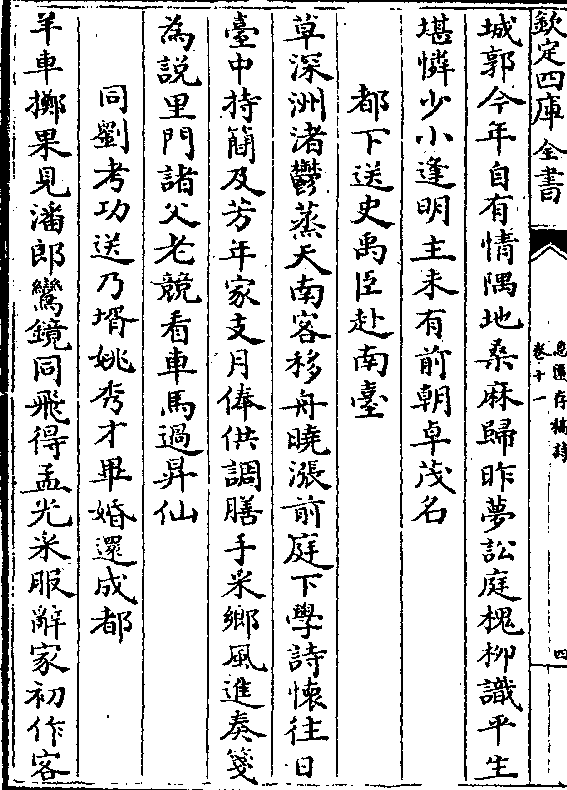 欽定四庫全書
卷十一
四
城郭今年自有情隅地桑麻歸昨夢訟庭槐柳識平生
堪憐少小逢明主未有前朝卓茂名
都下送史禹臣赴南臺
草深洲渚鬱蒸天南客移舟曉漲前庭下學詩懷往日
臺中持簡及芳年家支月俸供調膳手采鄉風進奏箋
為説里門諸父老競看車馬過昇仙
同劉考功送乃壻姚秀才畢婚還成都
羊車擲果見潘郎鸞鏡同飛得孟光采服辭家初作客